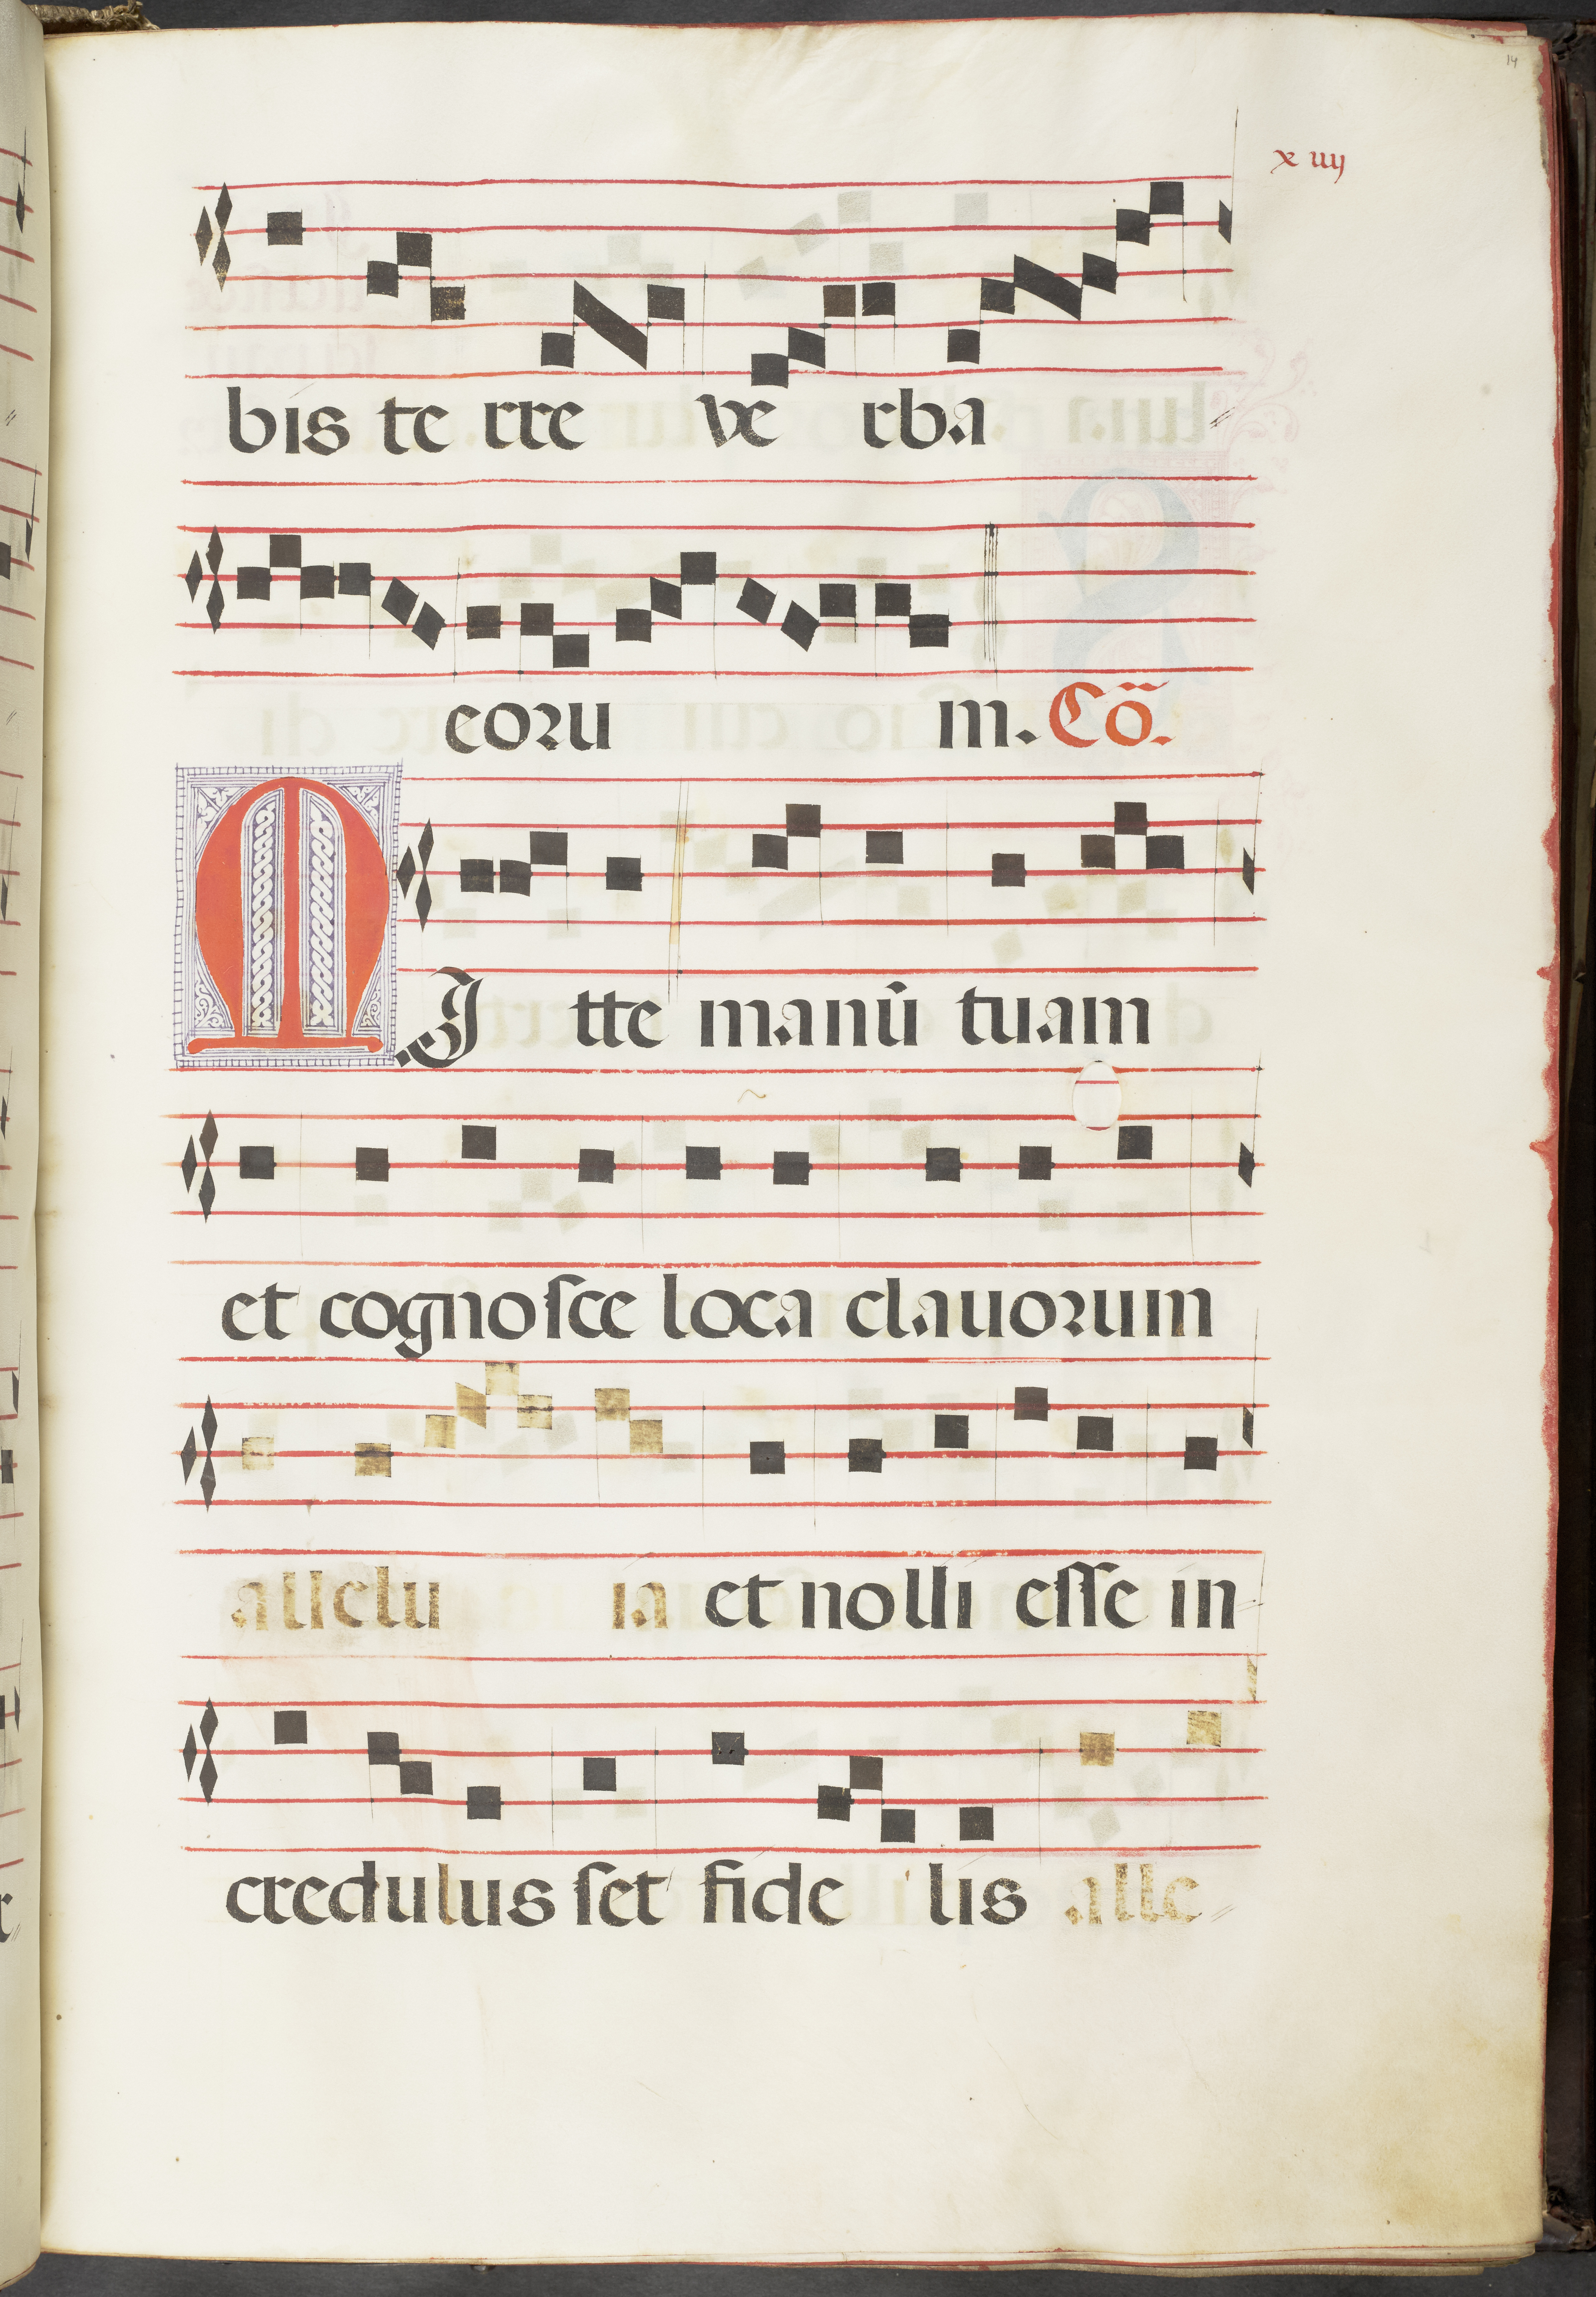 14
x iiij
bis te rre ve rba
eoru m. Cõ.
MJ tte manū tuam
et cognoſce loca clauorum
allelu ia et nolli eſſe in
credulus ſet fide lis alle